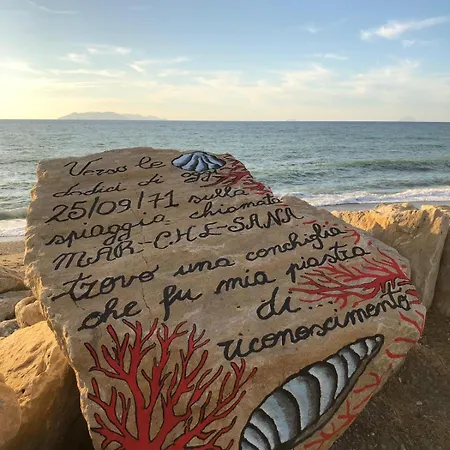 Verso le
dodici di oggi
25/09/71 sulla
spiaggia chiamata
MAR-CHE-SANA
trovo una conchiglia
che fu mia piastra
di ... 
riconoscimento